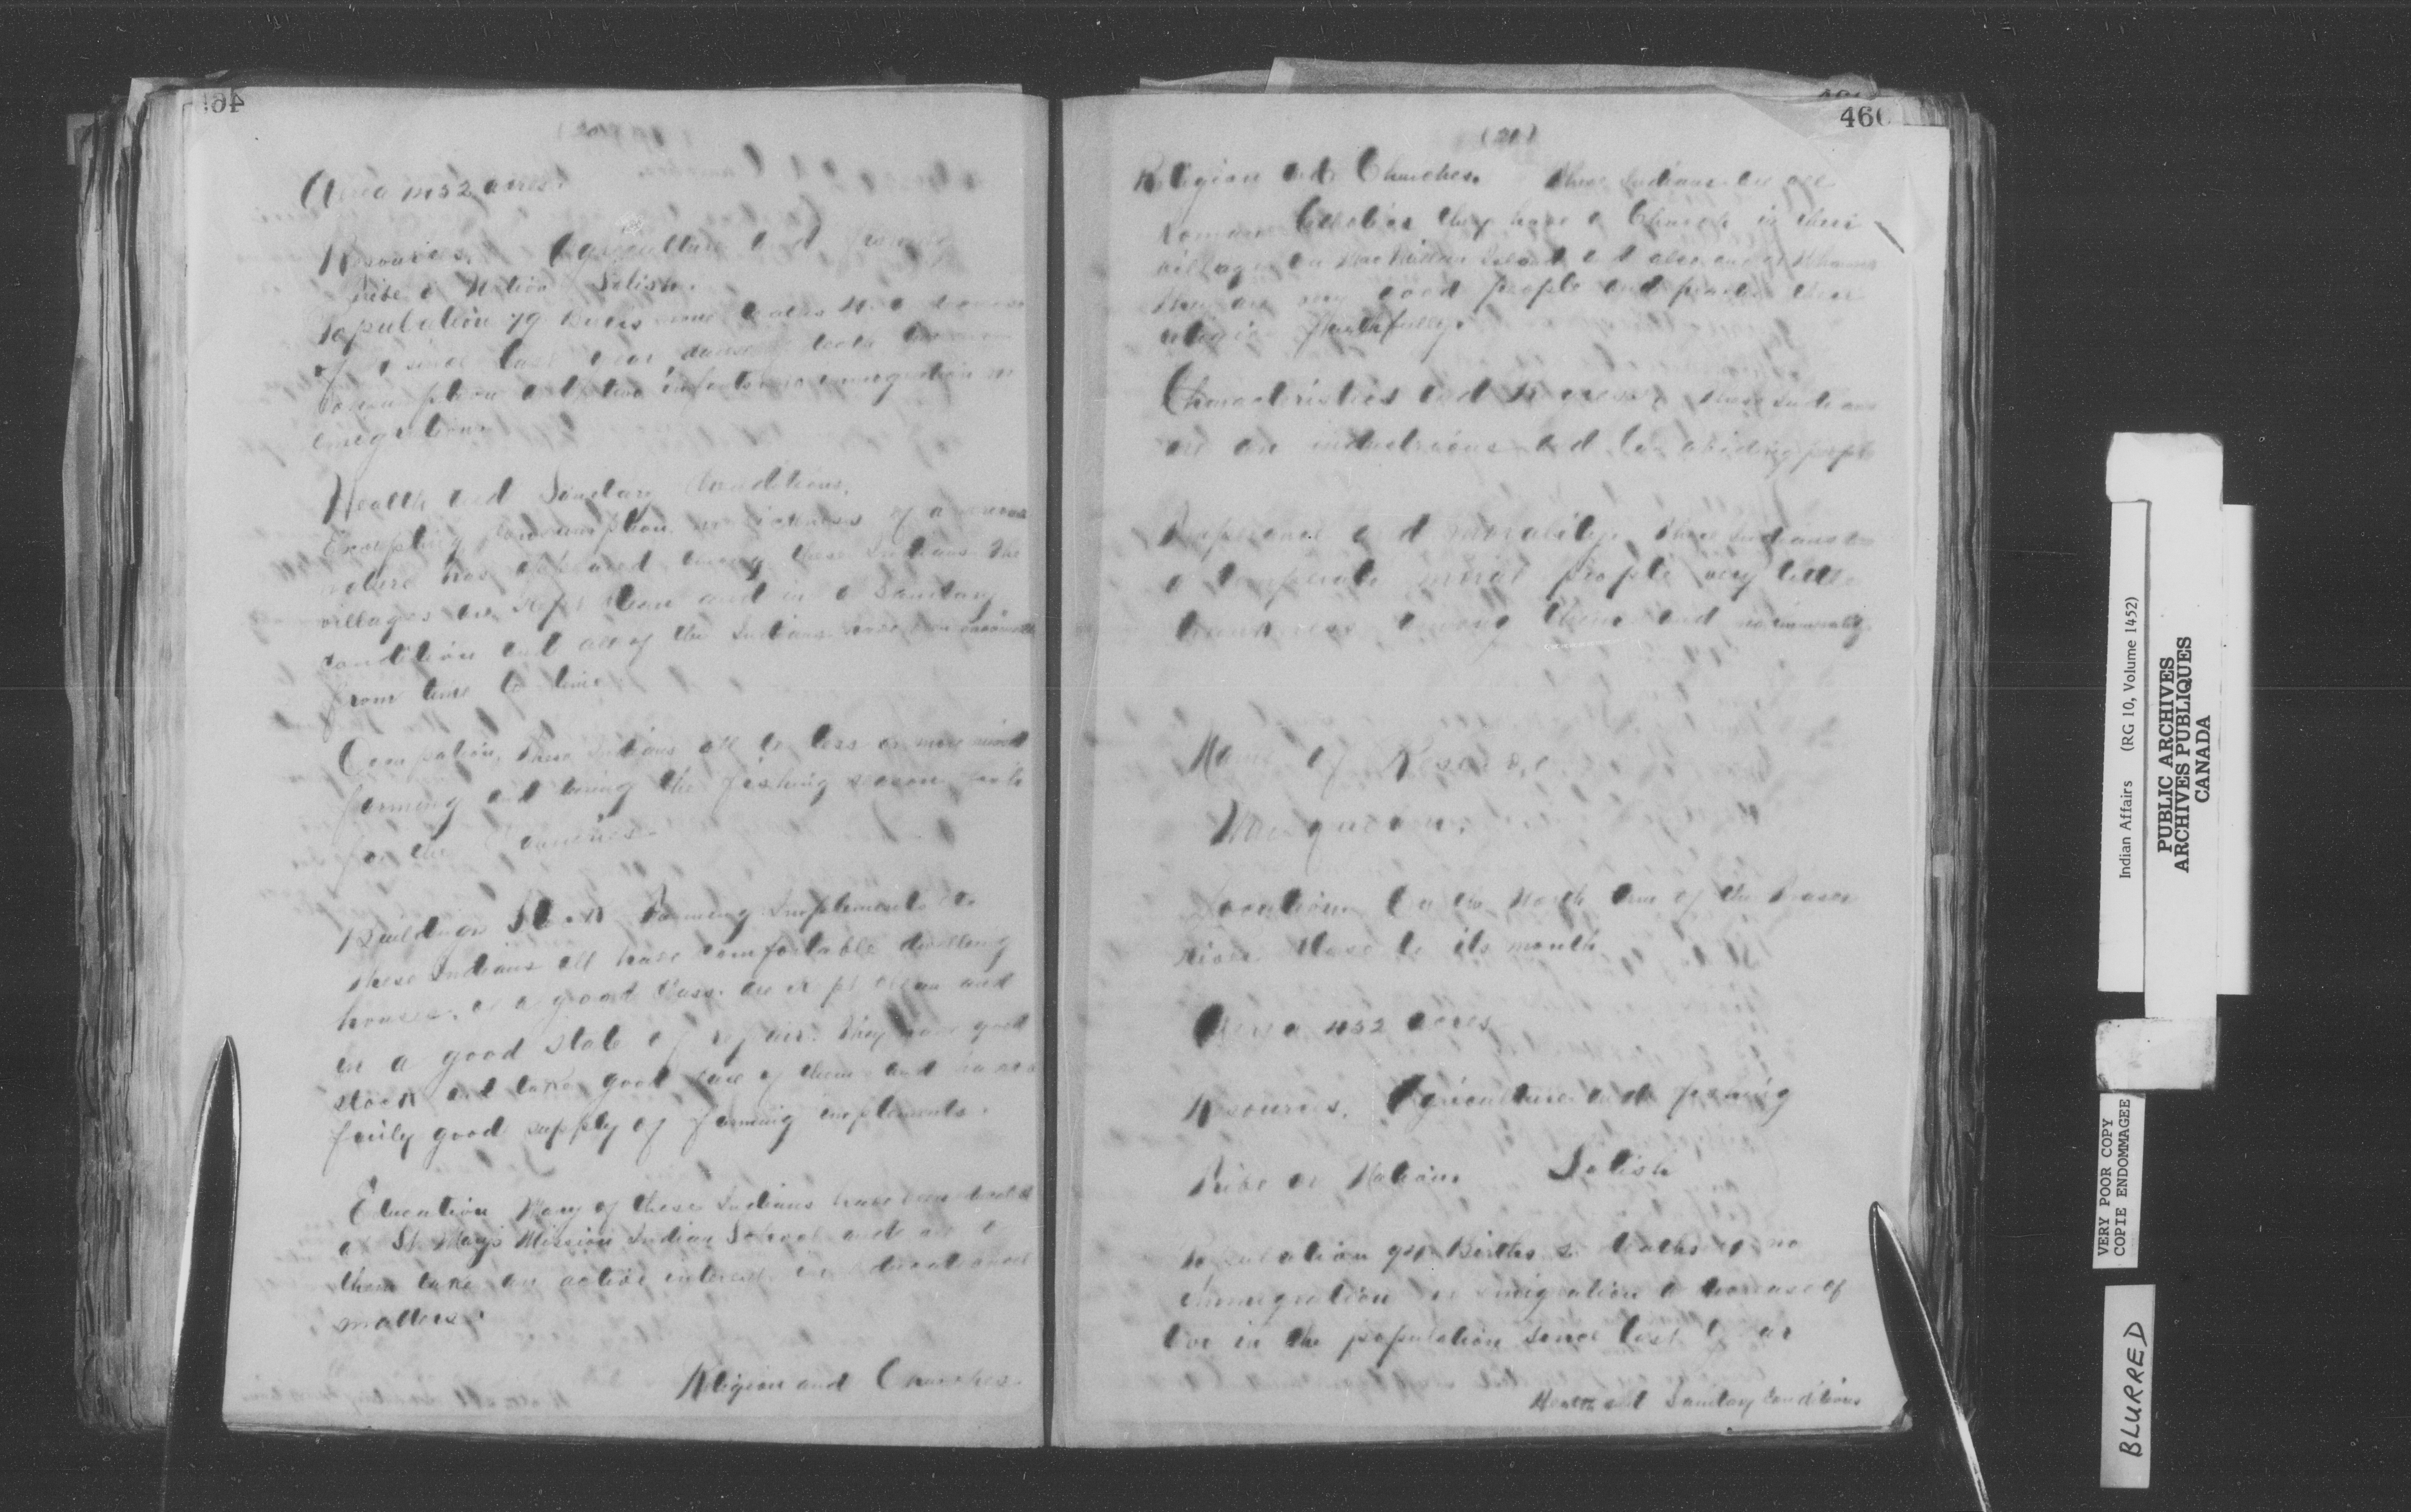 Area 1432 acres.
Resources. Agriculture and farming
Tribe or Nation Salish.
Population 79 Births deaths a decrease
of since last year,
consumption and two infants no immigration or
emigration.
Health and Sanitary Conditions.
Excepting consumption no sickness of a serious
nature has appeared among these Indians. The
villages are kept clean and in a Sanitary
condition and all of the Indians have been vaccinated
from time to time
Occupation, these Indians all do less or more mixed
farming and during the fishing season
for the Canneries.
Buildings Stock Farming Implements etc
These Indians all have comfortable dwelling
houses, of a good class. are kept clean and
in a good state of repair. They have good
stock and take good care of them and have a
fairly good supply of farming implements.
Education Many of these Indians have been
at St. Mary's Mission Indian School and
them take an active interest in educational
matters.
Religion and Churches.
(21)
460
Religion and Churches. These Indians are all
Roman Catholics they have a Church in their
village on MacMillan Island and also one at
They are very good people and practice their
religion faithfully.
Characteristics and Progress, these Indians
are an industrious and law abiding people
Temperance and Morality. These Indians are
a temperate moral people very little
drunkness among them and no immorality.
Name of Reserve.
Musqueam.
Location. On the North Arm of the Fraser
river close to its mouth
Area 452 acres
Resources. Agriculture and farming
Tribe or Nation. Salish
Population Births deaths no
immigration or emigration a decrease of
two in the population since last year
Health and Sanitary Conditions
Indian Affairs (RG 10, Volume 1452)
PUBLIC ARCHIVES
ARCHIVES PUBLIQUES
CANADA
VERY POOR COPY
COPIE ENDOMMAGEE
BLURRED